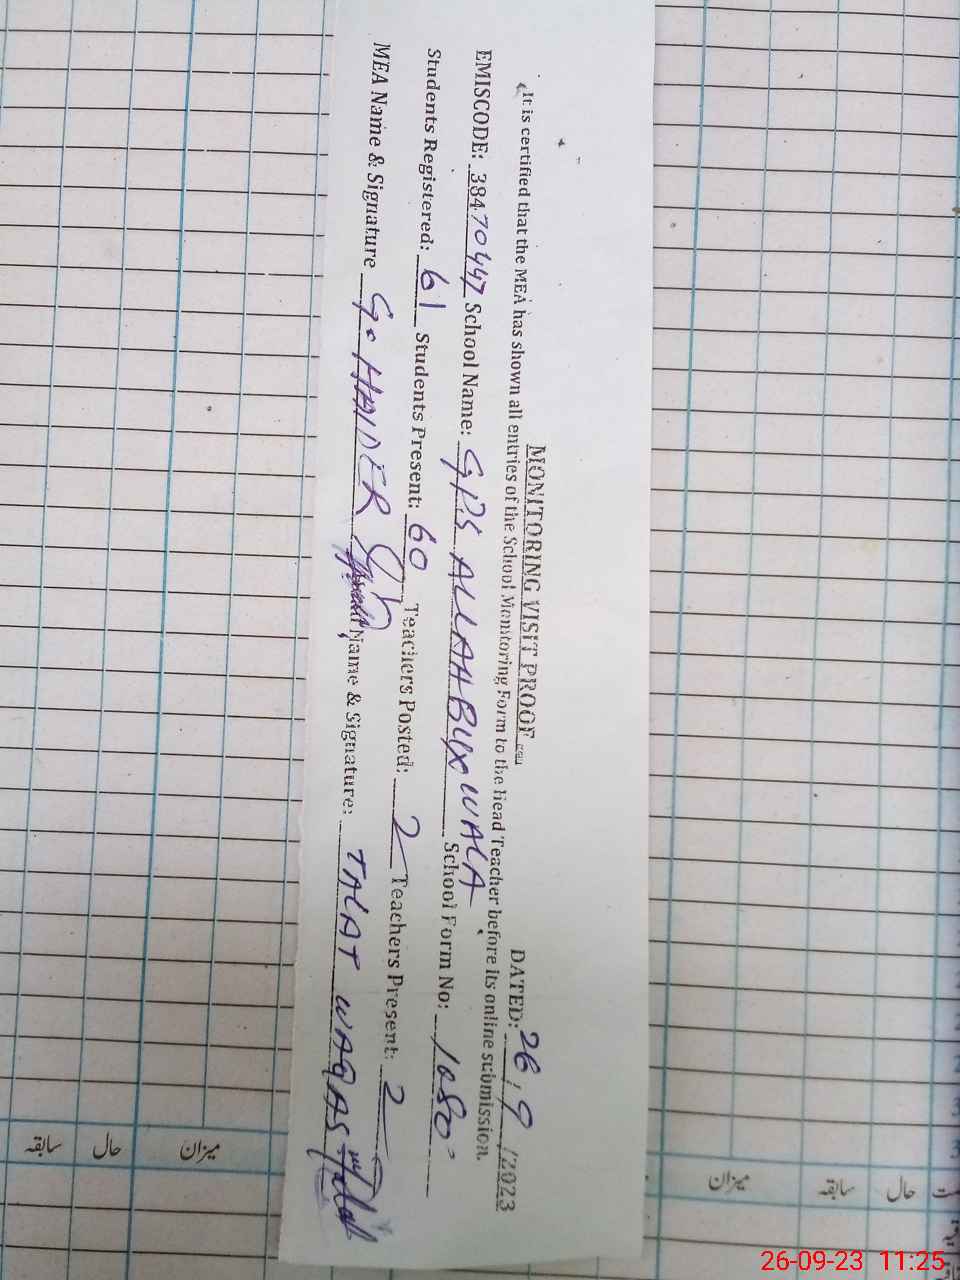 MONITORING VISIT PROOF
DATED: 26/9/2023
It is certified that the MEA has shown all entries of the School Monitoring Form to the Head Teacher before its online submission.
EMISCODE: 38470447 School Name: GPS ALLAHBUX WALA School Form No: 1080
Students Registered: 61 Students Present: 60 Teachers Posted: 2 Teachers Present: 2
MEA Name & Signature G. HAIDER Name & Signature: TALAT WAQAS
میزان حال سابقہ
میزان سابقہ حال
26-09-23 11:25